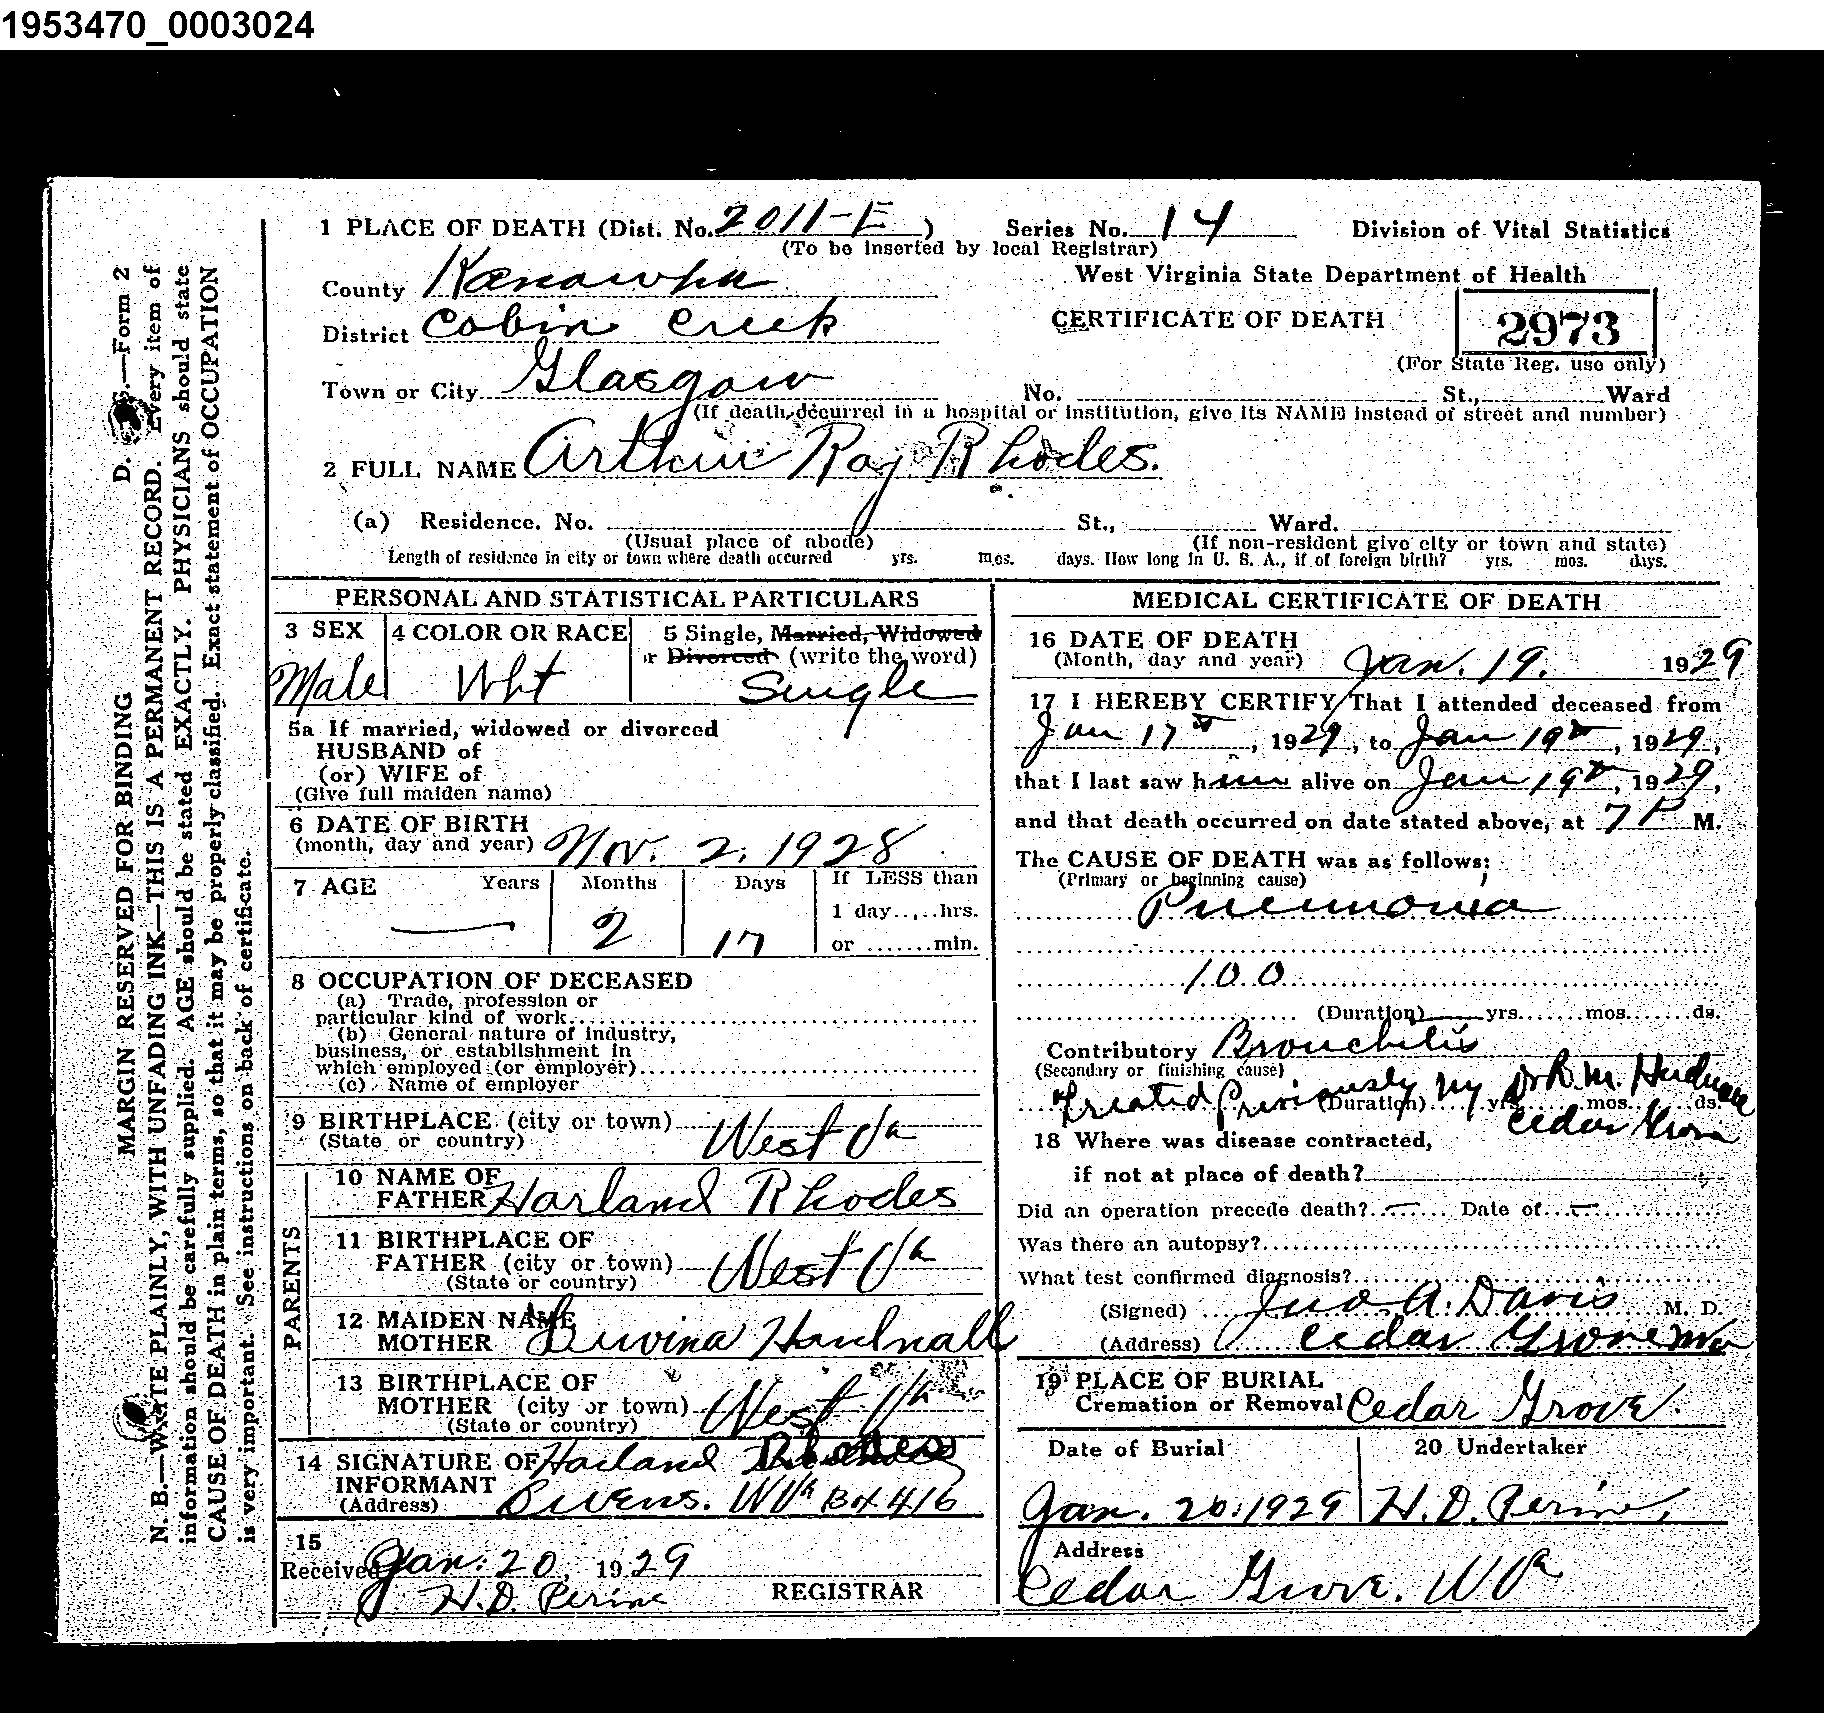 1953470_0003024
1 PLACE OF DEATH (Dist. No. 2011-E )
Series No. 14
Division of Vital Statistics
(To be inserted by local Registrar)
County Kanawha
West Virginia State Department of Health
District Cabin Creek
CERTIFICATE OF DEATH
2973
(For State Reg. use only)
Town or City Glasgow
No. St., Ward
(If death occurred in a hospital or institution, give its NAME instead of street and number)
2 FULL NAME Arthur Ray Rhodes.
(a) Residence. No. St., Ward.
(Usual place of abode) (If non-resident give city or town and state)
Length of residence in city or town where death occurred yrs. mos. days. How long in U. S. A., if of foreign birth? yrs. mos. days.
PERSONAL AND STATISTICAL PARTICULARS
3 SEX
Male
4 COLOR OR RACE
Wht
5 Single, Married, Widowed
or Divorced (write the word)
Single
5a If married, widowed or divorced
HUSBAND of
(or) WIFE of
(Give full maiden name)
6 DATE OF BIRTH
(month, day and year) Nov. 2. 1928
7 AGE Years Months Days If LESS than
1 day.....hrs.
— 2 17
or .......min.
8 OCCUPATION OF DECEASED
(a) Trade, profession or
particular kind of work
(b) General nature of industry,
business, or establishment in
which employed (or employer)
(c) Name of employer
9 BIRTHPLACE (city or town)
(State or country) West Va
PARENTS
10 NAME OF
FATHER Harland Rhodes
11 BIRTHPLACE OF
FATHER (city or town)
(State or country) West Va
12 MAIDEN NAME
MOTHER Hardnall
13 BIRTHPLACE OF
MOTHER (city or town)
(State or country) West Va
14 SIGNATURE OF Harland Rhodes
INFORMANT
(Address) Owens. WVa Bx 416
15
Received Jan. 20, 1929
H.D. Perine REGISTRAR
MEDICAL CERTIFICATE OF DEATH
16 DATE OF DEATH
(Month, day and year) Jan. 19. 1929
17 I HEREBY CERTIFY That I attended deceased from
Jan 17th, 1929, to Jan 19th, 1929,
that I last saw him alive on Jan 19th, 1929,
and that death occurred on date stated above, at 7 P M.
The CAUSE OF DEATH was as follows:
(Primary or beginning cause)
Pneumonia
100
(Duration) yrs. mos. ds.
Contributory Bronchitis
(Secondary or finishing cause)
Treated Previously by Dr
(Duration) yrs. mos. ds.
Cedar Grove
18 Where was disease contracted,
if not at place of death?
Did an operation precede death? — Date of —
Was there an autopsy?
What test confirmed diagnosis?
(Signed) Jno. A. Davis M. D.
(Address) Cedar Grove WVa
19 PLACE OF BURIAL
Cremation or Removal Cedar Grove.
Date of Burial
Jan. 20. 1929
20 Undertaker
H.D. Perine,
Address
Cedar Grove. WVa
D. S.—Form 2
MARGIN RESERVED FOR BINDING
N. B.—WRITE PLAINLY, WITH UNFADING INK—THIS IS A PERMANENT RECORD. Every item of
information should be carefully supplied. AGE should be stated EXACTLY. PHYSICIANS should state
CAUSE OF DEATH in plain terms, so that it may be properly classified. Exact statement of OCCUPATION
is very important. See instructions on back of certificate.